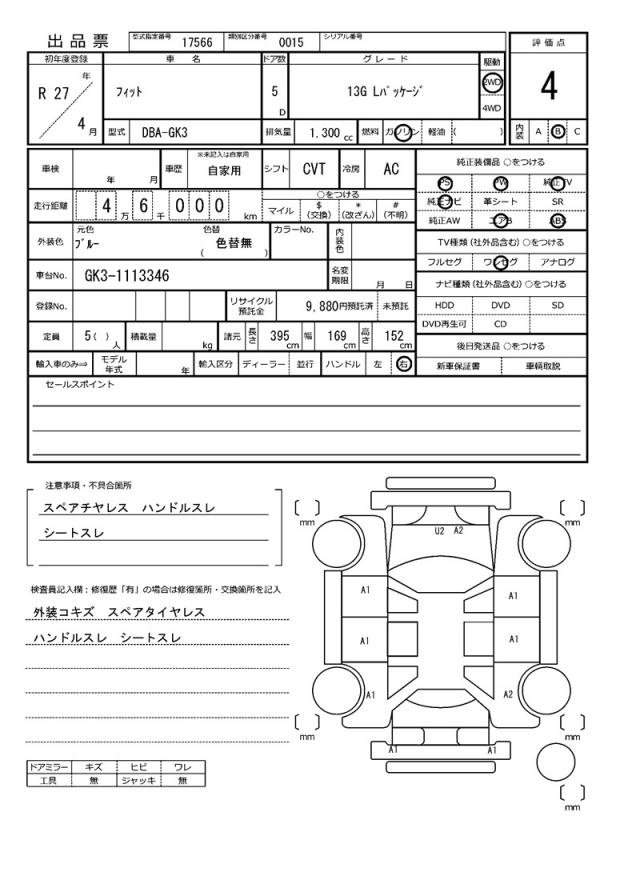 出品票
型式指定番号 17566 類別区分番号 0015 シリアル番号
初年度登録 車名 ドア数 グレード 駆動 評価点
R 27 年 4 月
フィット 5 D 13G Lパッケージ 2WD 4WD 4
型式 DBA-GK3 排気量 1.300 cc 燃料 ガソリン 軽油 ( ) 内装 A B C
車検 年 月 車歴 ※未記入は自家用 自家用 シフト CVT 冷房 AC
走行距離 4 万 6 千 0 0 0 km ○をつける
マイル $ (交換) * (改ざん) # (不明)
外装色 元色 ブルー 色替 ( 色替無 ) カラーNo. 内装色
車台No. GK3-1113346 名変期限 月 日
登録No. リサイクル預託金 9,880円預託済 未預託
定員 5 ( ) 人 積載量 kg 諸元 長さ 395 cm 幅 169 cm 高さ 152 cm
輸入車のみ⇒ モデル年式 年 輸入区分 ディーラー 並行 ハンドル 左 右
純正装備品 ○をつける
PS PW 純正TV
純正ナビ 革シート SR
純正AW エアB ABS
TV種類(社外品含む)○をつける
フルセグ ワンセグ アナログ
ナビ種類(社外品含む)○をつける
HDD DVD SD
DVD再生可 CD
後日発送品 ○をつける
新車保証書 車輌取説
セールスポイント
注意事項・不具合箇所
スペアチヤレス ハンドルスレ
シートスレ
検査員記入欄:修復歴「有」の場合は修復箇所・交換箇所を記入
外装コキズ スペアタイヤレス
ハンドルスレ シートスレ
ドアミラー キズ ヒビ ワレ
工具 無 ジャッキ 無
mm mm
U2 A2
A1 A1
A1 A1
A1 A2
mm mm
A1 A1
mm